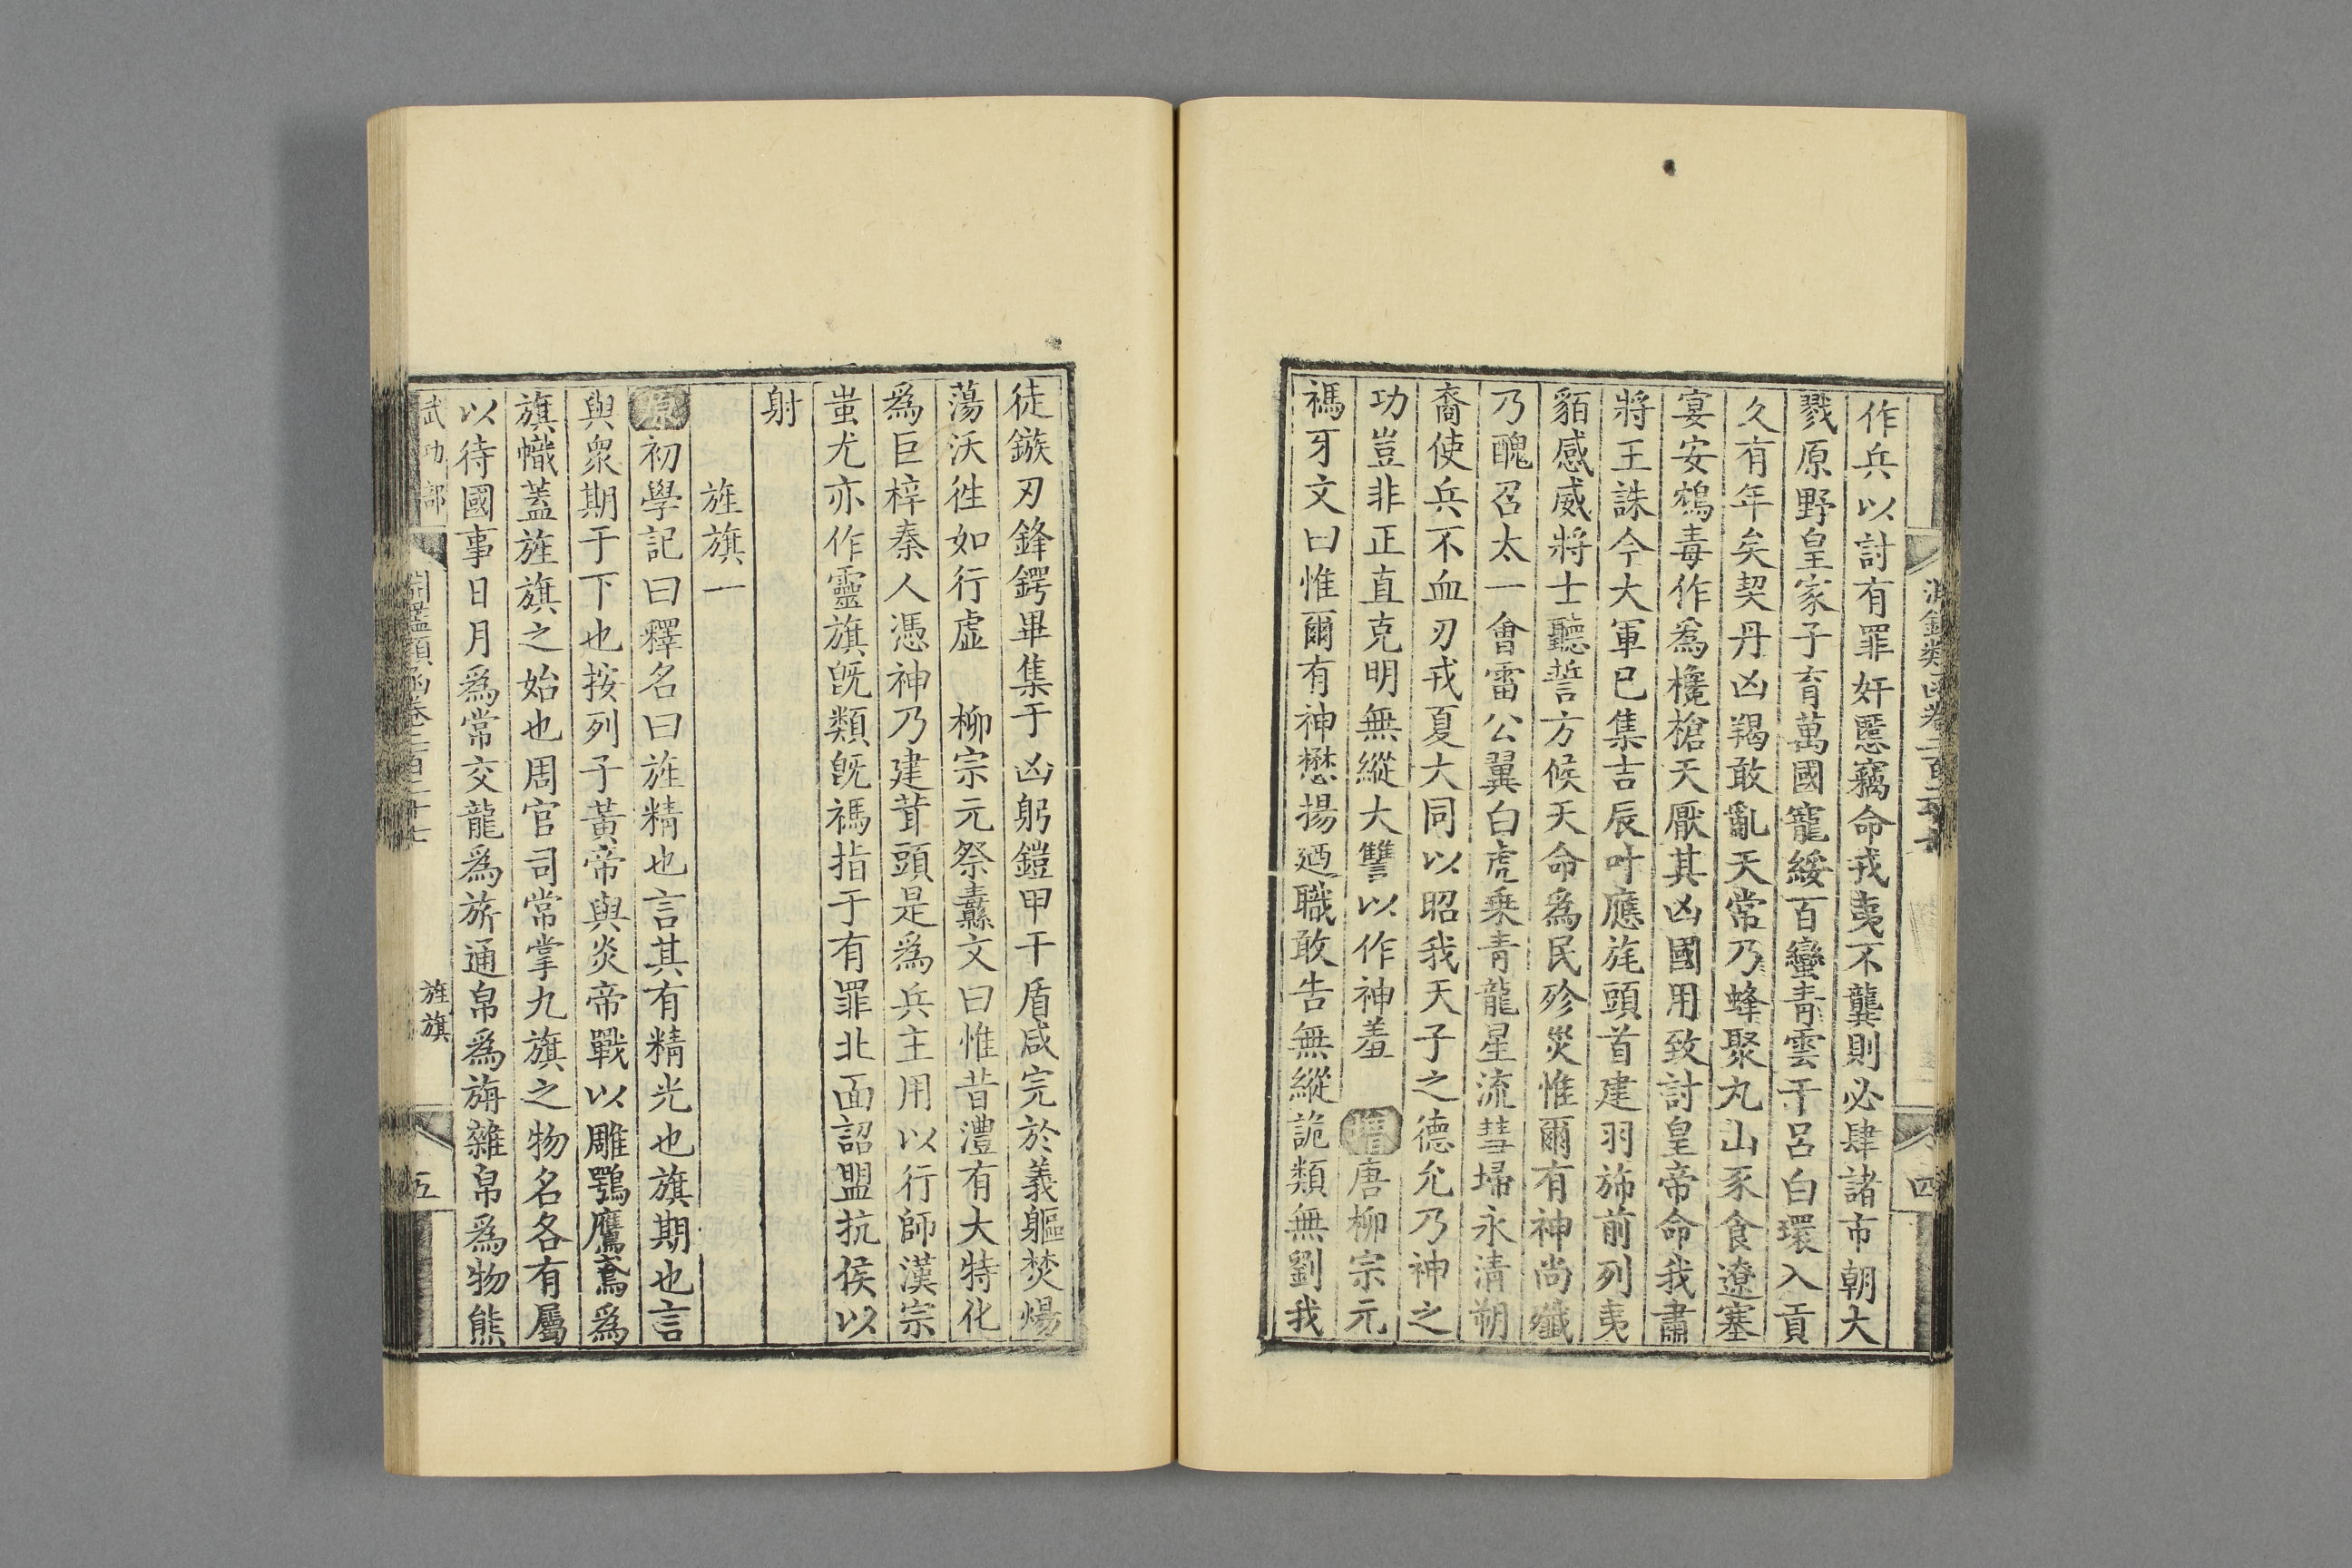 淵鑑類函卷二百二十七
四
作兵以討有罪奸慝竊命戎夷不龔則必肆諸市朝大
戮原野皇家子育萬國寵綏百蠻青雲干呂白環入貢
久有年矣契丹凶羯敢亂天常乃蜂聚丸山豕食遼塞
宴安鴆毒作爲欃槍天厭其凶國用致討皇帝命我肅
將王誅今大軍已集吉辰叶應旄頭首建羽旆前列夷
貊感威將士聽誓方候天命爲民殄災惟爾有神尚殲
乃醜召太一會雷公翼白虎乘青龍星流彗埽永清朔
裔使兵不血刃戎夏大同以昭我天子之德允乃神之
功豈非正直克明無縱大讐以作神羞　增唐柳宗元
禡牙文曰惟爾有神懋揚廼職敢告無縱詭類無劉我
徒鏃刃鋒鍔畢集于凶躬鎧甲干盾咸完於義軀焚煬
蕩沃徃如行虛　柳宗元祭纛文曰惟昔澧有大特化
爲巨梓秦人憑神乃建茸頭是爲兵主用以行師漢宗
蚩尤亦作靈旗旣類旣禡指于有罪北面詔盟抗侯以
射
旌旗一
原初學記曰釋名曰旌精也言其有精光也旗期也言
與衆期于下也按列子黃帝與炎帝戰以雕鶚鷹鳶爲
旗幟蓋旌旗之始也周官司常掌九旗之物名各有屬
以待國事日月爲常交龍爲旂通帛爲旃雜帛爲物熊
武功部
淵鑑類函卷二百二十七
旌旗
五